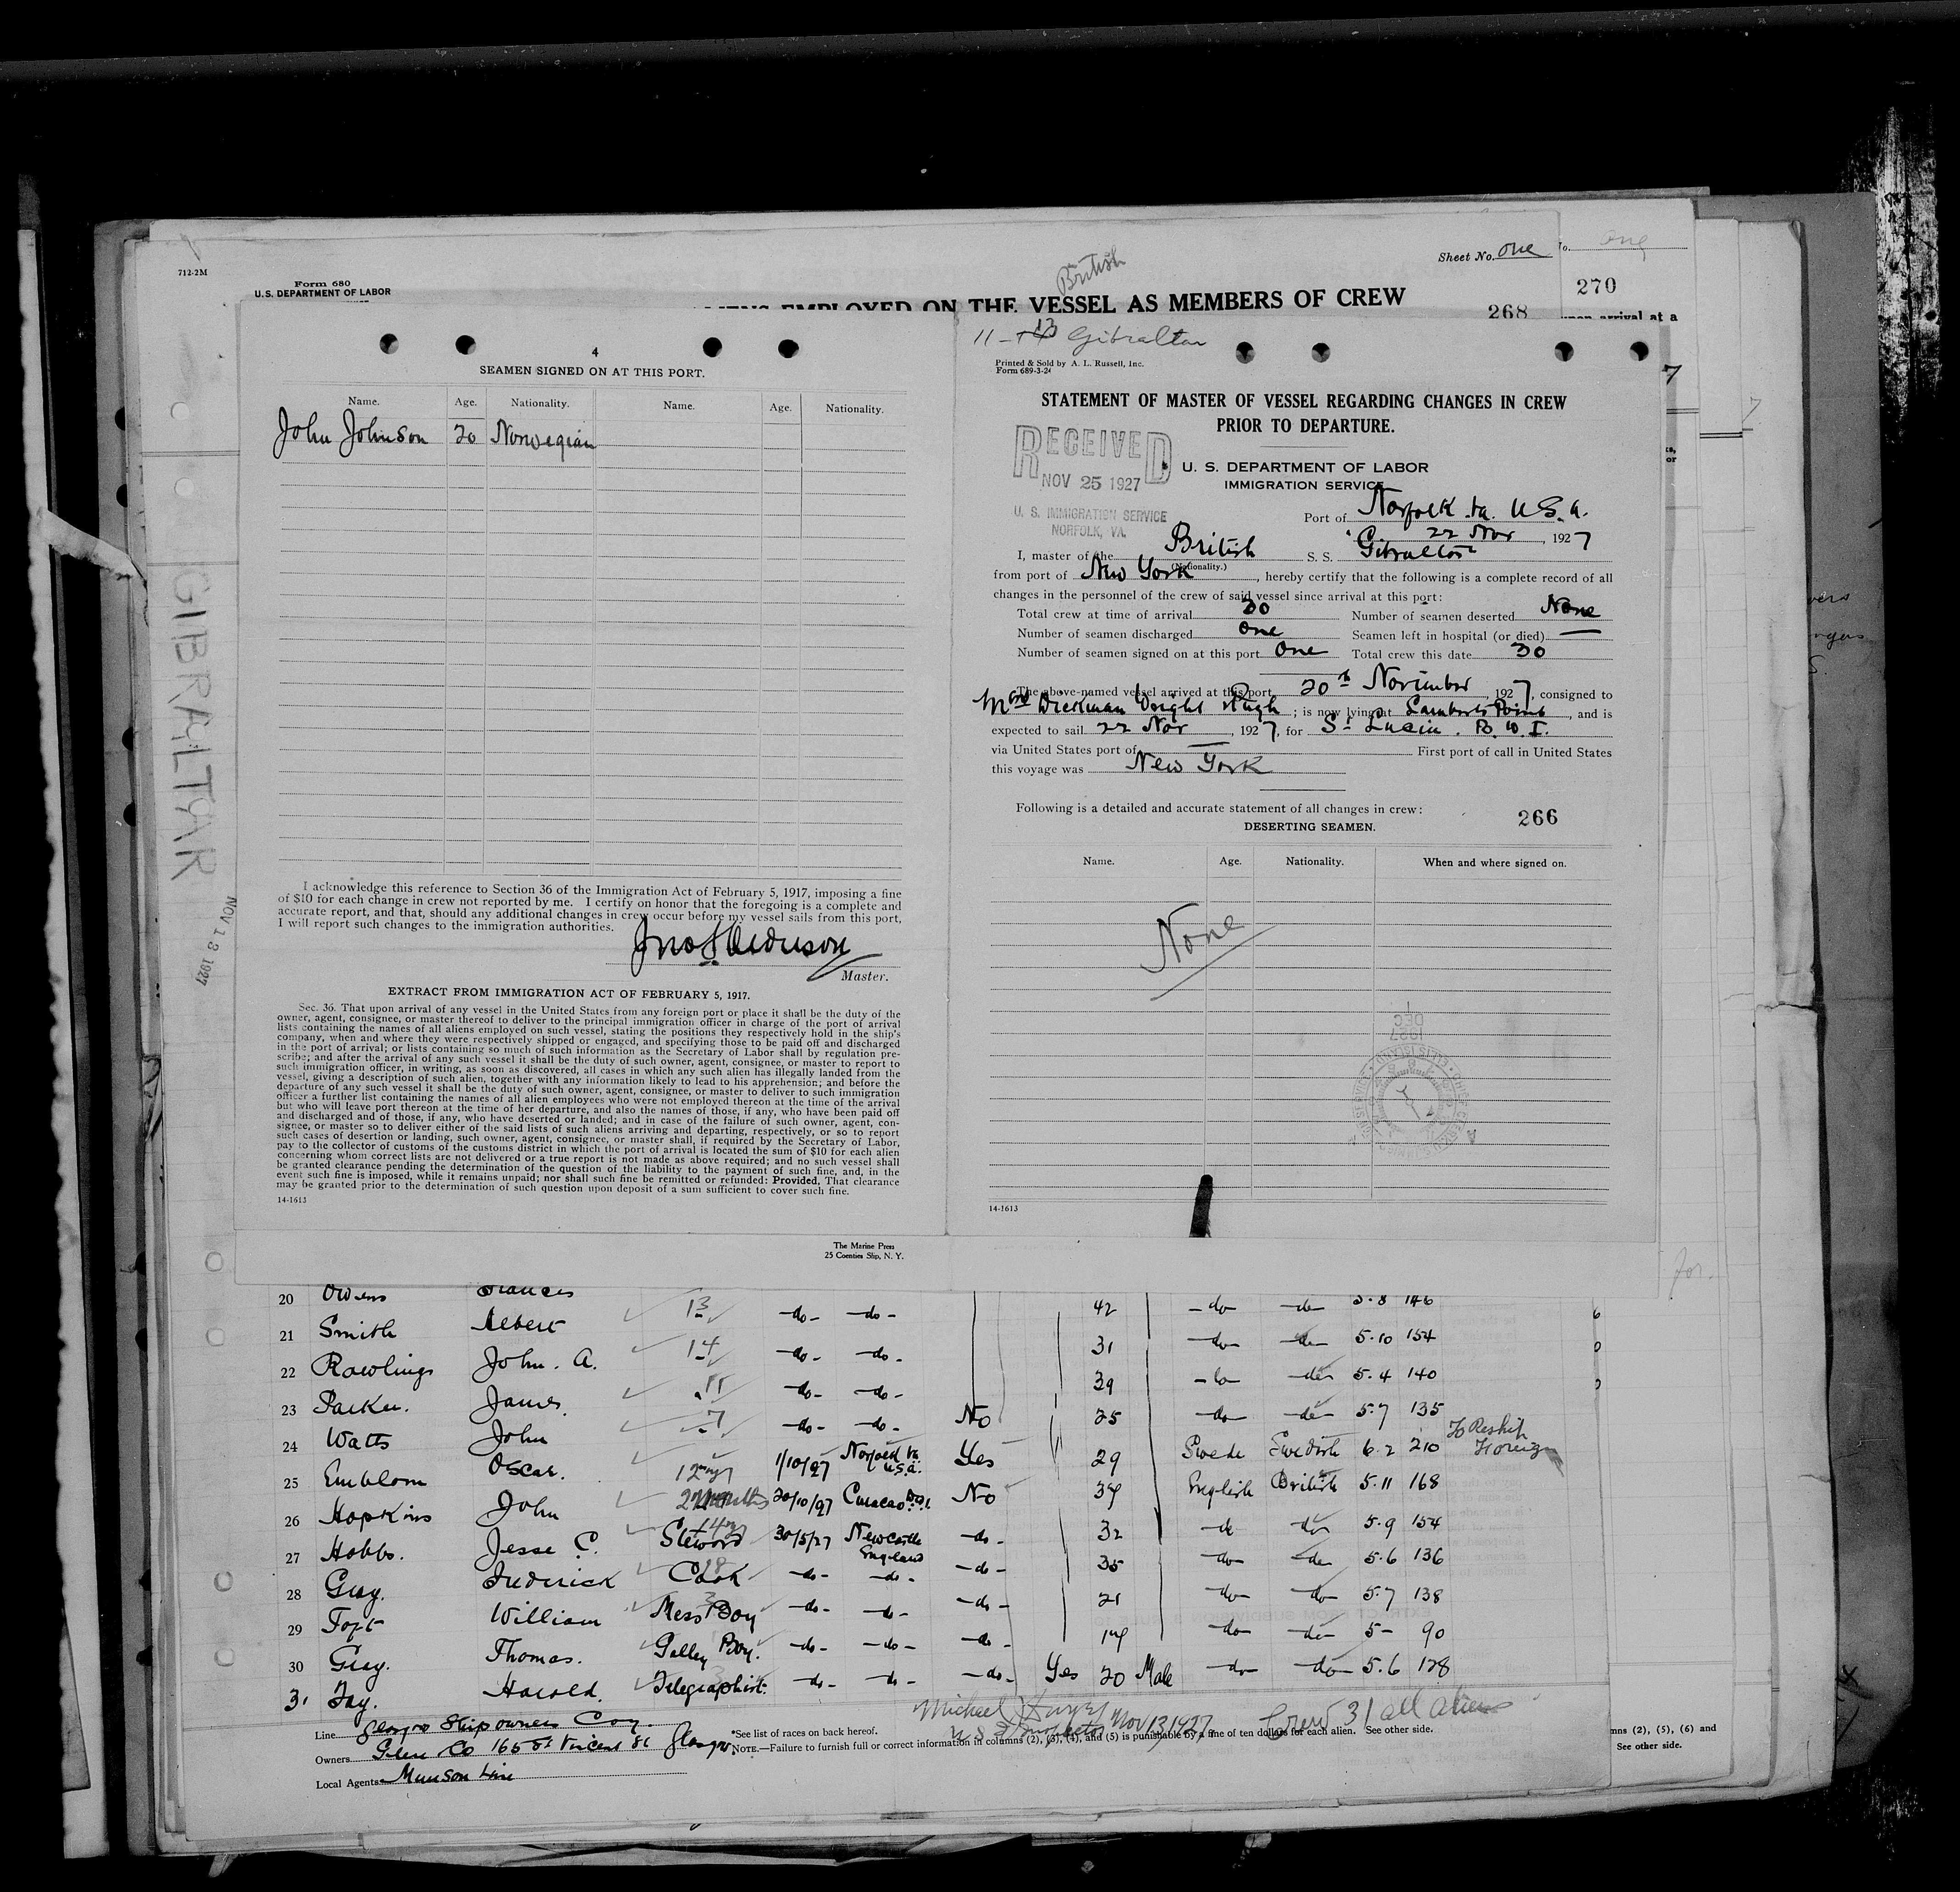 712-2M
Form 680
U. S. DEPARTMENT OF LABOR
British
Sheet No. One
One
270
EMPLOYED ON THE VESSEL AS MEMBERS OF CREW
268
upon arrival at a
4
SEAMEN SIGNED ON AT THIS PORT.
Name. Age. Nationality. Name. Age. Nationality.
John Johnson 20 Norwegian
I acknowledge this reference to Section 36 of the Immigration Act of February 5, 1917, imposing a fine
of $10 for each change in crew not reported by me. I certify on honor that the foregoing is a complete and
accurate report, and that, should any additional changes in crew occur before my vessel sails from this port,
I will report such changes to the immigration authorities.
Master.
EXTRACT FROM IMMIGRATION ACT OF FEBRUARY 5, 1917.
Sec. 36. That upon arrival of any vessel in the United States from any foreign port or place it shall be the duty of the
owner, agent, consignee, or master thereof to deliver to the principal immigration officer in charge of the port of arrival
lists containing the names of all aliens employed on such vessel, stating the positions they respectively hold in the ship's
company, when and where they were respectively shipped or engaged, and specifying those to be paid off and discharged
in the port of arrival; or lists containing so much of such information as the Secretary of Labor shall by regulation pre-
scribe; and after the arrival of any such vessel it shall be the duty of such owner, agent, consignee, or master to report to
such immigration officer, in writing, as soon as discovered, all cases in which any such alien has illegally landed from the
vessel, giving a description of such alien, together with any information likely to lead to his apprehension; and before the
departure of any such vessel it shall be the duty of such owner, agent, consignee, or master to deliver to such immigration
officer a further list containing the names of all alien employees who were not employed thereon at the time of the arrival
but who will leave port thereon at the time of her departure, and also the names of those, if any, who have been paid off
and discharged and of those, if any, who have deserted or landed; and in case of the failure of such owner, agent, con-
signee, or master so to deliver either of the said lists of such aliens arriving and departing, respectively, or so to report
such cases of desertion or landing, such owner, agent, consignee, or master shall, if required by the Secretary of Labor,
pay to the collector of customs of the customs district in which the port of arrival is located the sum of $10 for each alien
concerning whom correct lists are not delivered or a true report is not made as above required; and no such vessel shall
be granted clearance pending the determination of the question of the liability to the payment of such fine, and, in the
event such fine is imposed, while it remains unpaid; nor shall such fine be remitted or refunded: Provided, That clearance
may be granted prior to the determination of such question upon deposit of a sum sufficient to cover such fine.
14-1613
The Marine Press
25 Coenties Slip, N. Y.
GIBRALTAR
NOV 13 1927
11-13 Gibraltar
Printed & Sold by A. L. Russell, Inc.
Form 689-3-24
STATEMENT OF MASTER OF VESSEL REGARDING CHANGES IN CREW
PRIOR TO DEPARTURE.
RECEIVED
NOV 25 1927
U. S. IMMIGRATION SERVICE
NORFOLK, VA.
U. S. DEPARTMENT OF LABOR
IMMIGRATION SERVICE
Port of Norfolk Va. U.S.A.
22 Nov, 1927
I, master of the British S. S. Gibraltar
(Nationality.)
from port of New York, hereby certify that the following is a complete record of all
changes in the personnel of the crew of said vessel since arrival at this port:
Total crew at time of arrival 30 Number of seamen deserted None
Number of seamen discharged One Seamen left in hospital (or died) —
Number of seamen signed on at this port One Total crew this date 30
The above-named vessel arrived at this port 20th November, 1927, consigned to
Dickman Wright Pugh; is now lying at Lamberts Point, and is
expected to sail 22 Nov, 1927, for St Lucia. B.W.I.
via United States port of — First port of call in United States
this voyage was New York
Following is a detailed and accurate statement of all changes in crew:
266
DESERTING SEAMEN.
Name. Age. Nationality. When and where signed on.
None
DEC
1927
14-1613
20 Owens Frances 13 -do- -do- 42 -do- -do- 5.8 146
21 Smith Albert 14 -do- -do- 31 -do- -do- 5.10 154
22 Rawlings John. A. 11 -do- -do- 39 -do- -do- 5.4 140
23 Parker. James. 7 -do- -do- No 25 -do- -do- 5.7 135
24 Watts John
25 Emblom Oscar. 1/10/27 Norfolk Va U.S.A. Yes 29 Swede Swedish 6.2 210 To Reship Foreign
26 Hopkins John 20/10/27 Curacao No English British 5.11 168
27 Hobbs. Jesse C. Steward 30/5/27 Newcastle England -do- 32 -do- -do- 5.9 154
28 Gray. Frederick Cook -do- -do- -do- 35 -do- -do- 5.6 136
29 William Mess Boy -do- -do- -do- 21 -do- -do- 5.7 138
30 Gray. Thomas. Galley Boy. -do- -do- -do- -do- -do- 5- 90
31 Harold. Telegraphist. -do- -do- -do- Yes 20 Male -do- -do- 5.6 128
Line Glasgow Shipowners Coy.
Owners Glen Co 165 St Vincent St Glasgow.
Local Agents Munson Line
*See list of races on back hereof.
Michael
Nov 13/1927
Crew 31 all aliens
NOTE.—Failure to furnish full or correct information in columns (2), (3), (4), and (5) is punishable by a fine of ten dollars for each alien. See other side.
mns (2), (5), (6) and
See other side.